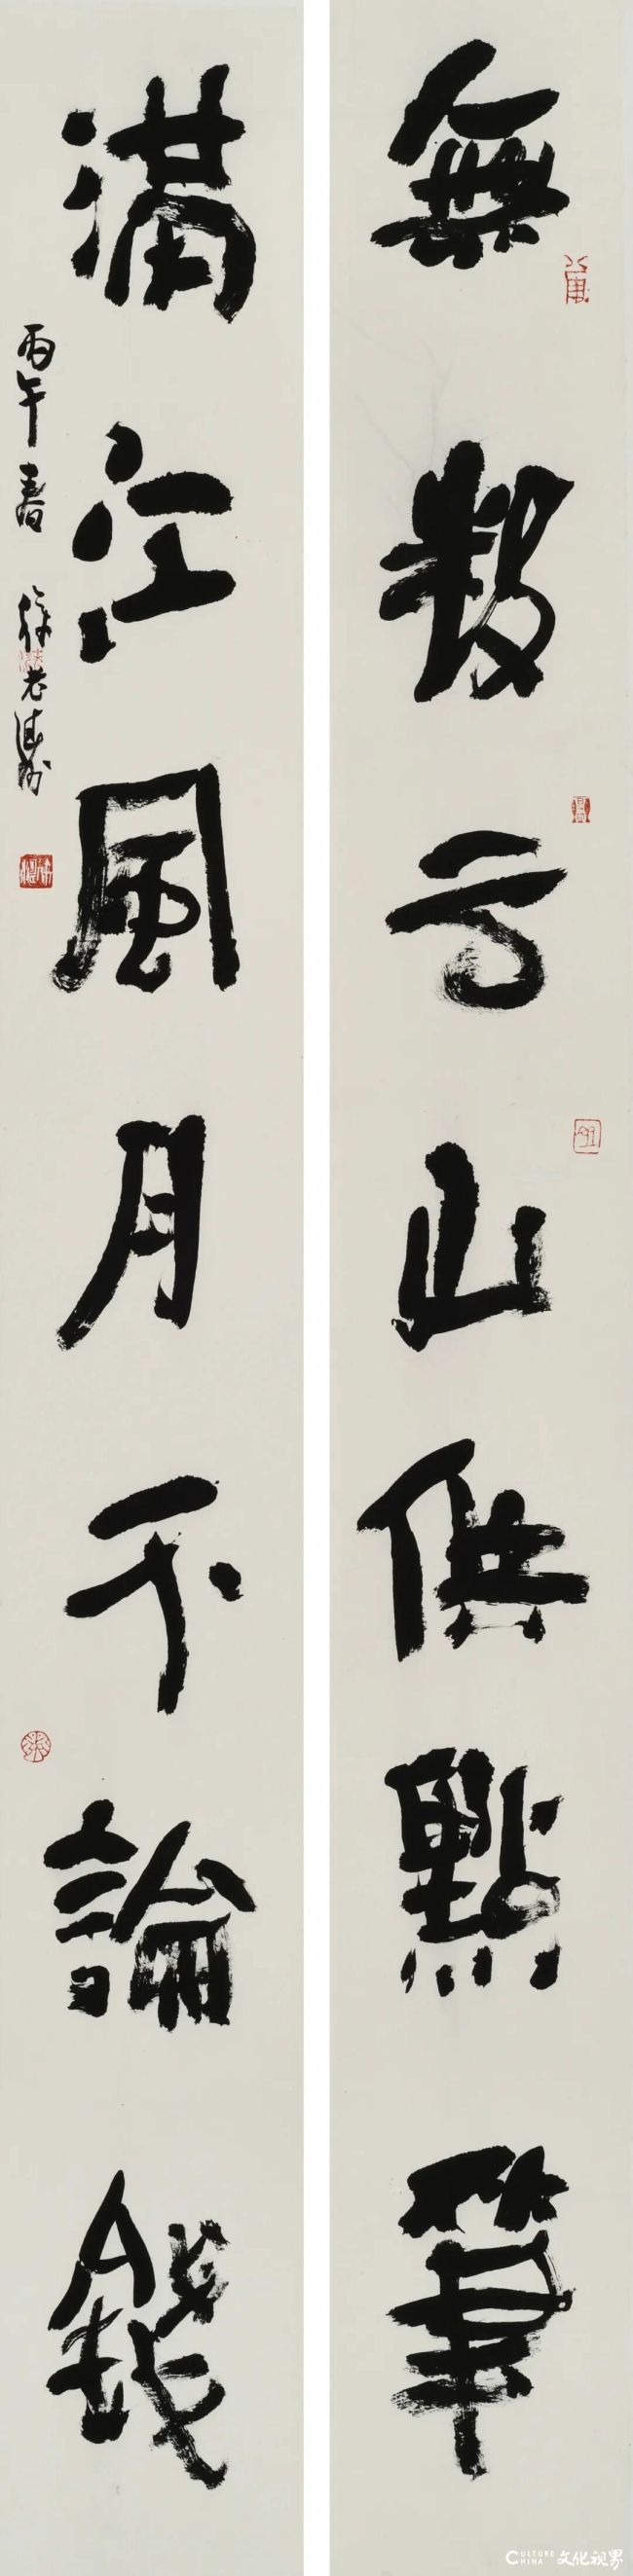 無數云山供點筆
滿江風月不論錢
丙午春 徐
CULTURE CHINA 文化视界